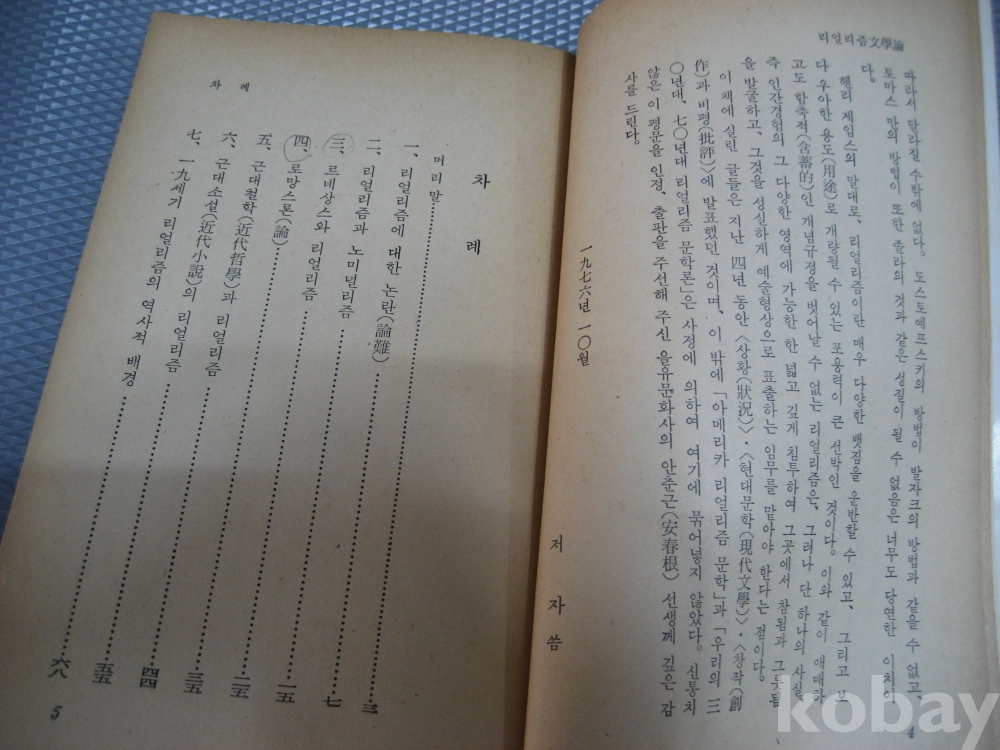 리얼리즘文學論
따라서 달라질 수밖에 없다. 도스토예프스키의 방법이 발자크의 방법과 같을 수 없고,
토마스 만의 방법이 또한 졸라의 것과 같은 성질이 될 수 없음은 너무도 당연한 이치이
다.
헨리 제임스의 말대로, 리얼리즘이란 매우 다양한 뱃짐을 운반할 수 있고, 그리고 보
다 우아한 용도(用途)로 개량될 수 있는 포용력이 큰 선박인 것이다. 이와 같이 애매하
고도 함축적(含蓄的)인 개념규정을 벗어날 수 없는 리얼리즘은, 그러나 단 하나의 사실,
즉 인간경험의 그 다양한 영역에 가능한 한 넓고 깊게 침투하여 그곳에서 참됨과 그릇됨
을 발굴하고, 그것을 성실하게 예술형상으로 표출하는 임무를 맡아야 한다는 점이다.
이 책에 실린 글들은 지난 四년 동안 〈상황(狀況)〉·〈현대문학(現代文學)〉·〈창작(創
作)과 비평(批評)〉에 발표했던 것이며, 이 밖에 「아메리카 리얼리즘 문학」과 「우리의 三
〇년대、七〇년대 리얼리즘 문학론」은 사정에 의하여 여기에 묶어넣지 않았다. 신통치
않은 이 평문을 인정, 출판을 주선해 주신 을유문화사의 안춘근(安春根) 선생께 깊은 감
사를 드린다.
一九七六년 一〇월
저 자 씀
4
차 례
차 례
머리말……三
一、리얼리즘에 대한 논란(論難)……七
二、리얼리즘과 노미널리즘……一五
三、르네상스와 리얼리즘……二五
四、로망스론(論)……三五
五、근대철학(近代哲學)과 리얼리즘……四四
六、근대소설(近代小說)의 리얼리즘……五五
七、一九세기 리얼리즘의 역사적 배경……六八
5
kobay